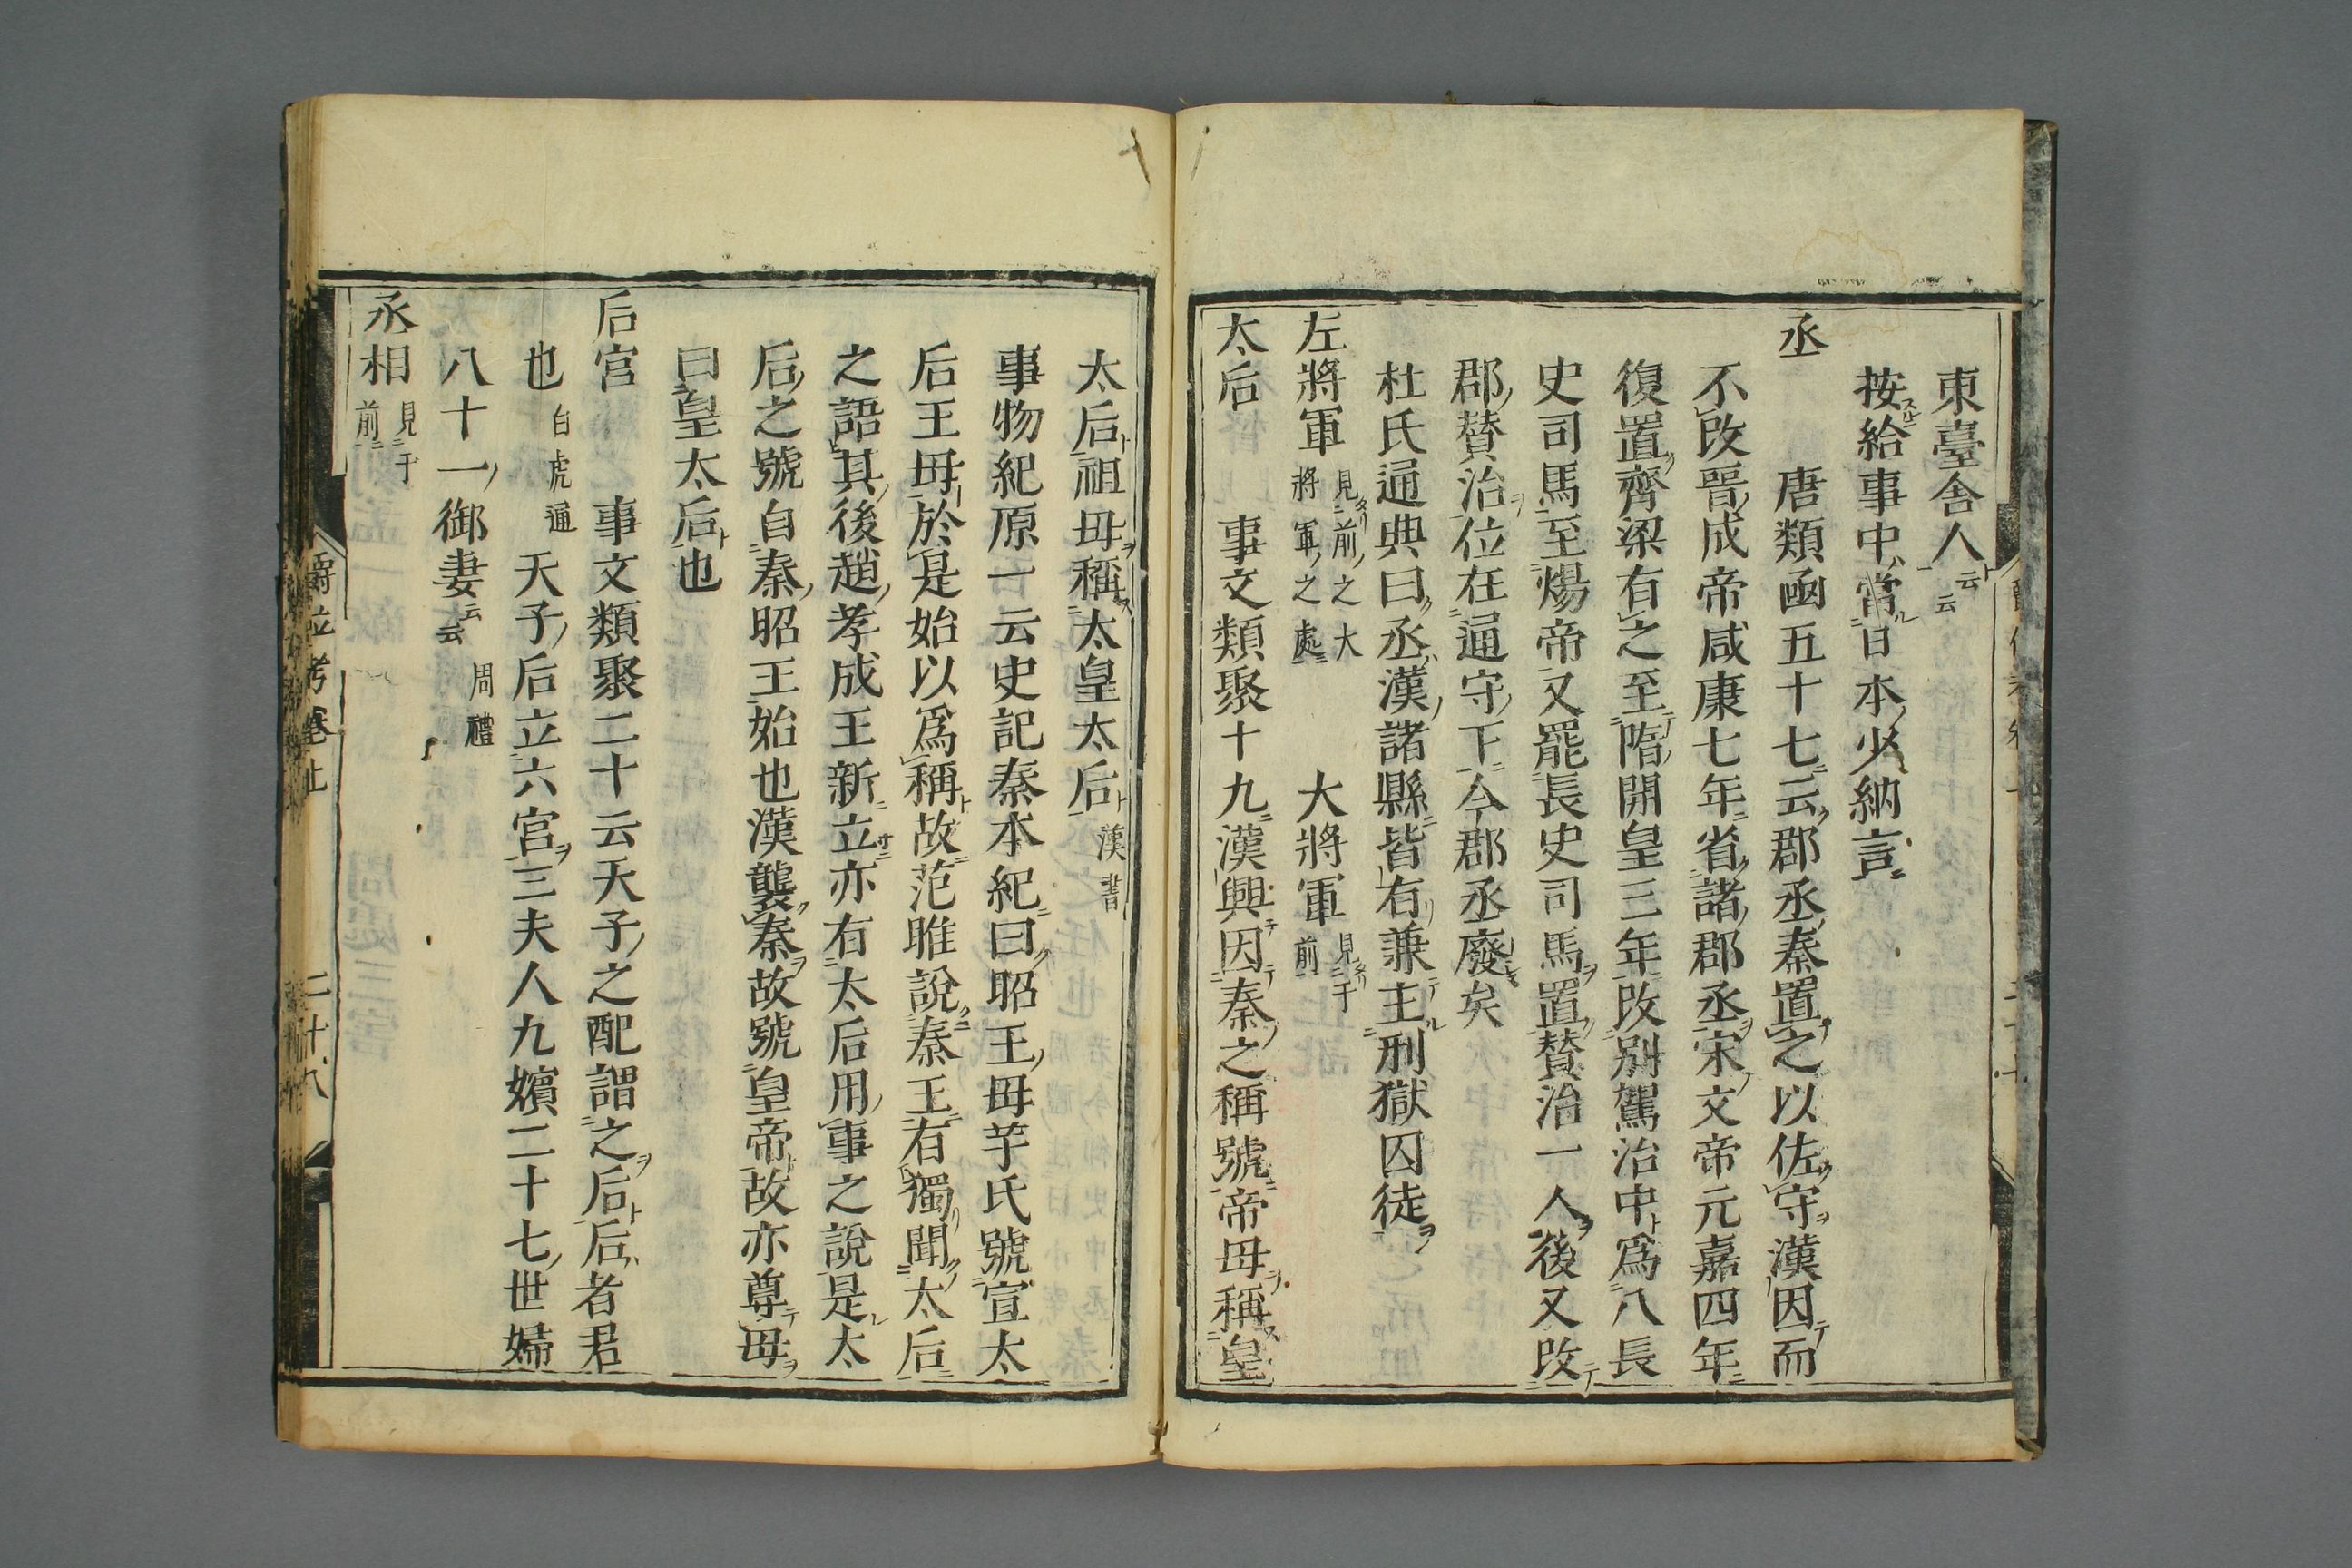 東臺舍人云云
按給事中當日本少納言
丞　唐類函五十七云郡丞秦置之以佐守漢因而
不改晉成帝咸康七年省諸郡丞宋文帝元嘉四年
復置齊梁有之至隋開皇三年改別駕治中爲八長
史司馬至煬帝又罷長史司馬置贊治一人後又改
郡贊治位在通守下今郡丞廢矣
杜氏通典曰丞漢諸縣皆有兼主刑獄囚徒
左將軍見前之大將軍之處　大將軍見于前
太后　事文類聚十九漢興因秦之稱號帝母稱皇
太后祖母稱太皇太后漢書
事物紀原一云史記秦本紀曰昭王母芊氏號宣太
后王母於是始以爲稱故范雎說秦王有獨聞太后
之語其後趙孝成王新立亦有太后用事之說是太
后之號自秦昭王始也漢襲秦故號皇帝故亦尊母
曰皇太后也
后宮　事文類聚二十云天子之配謂之后后者君
也白虎通　天子后立六宮三夫人九嬪二十七世婦
八十一御妻云云　周禮
丞相見于前
爵位考卷上　二十八